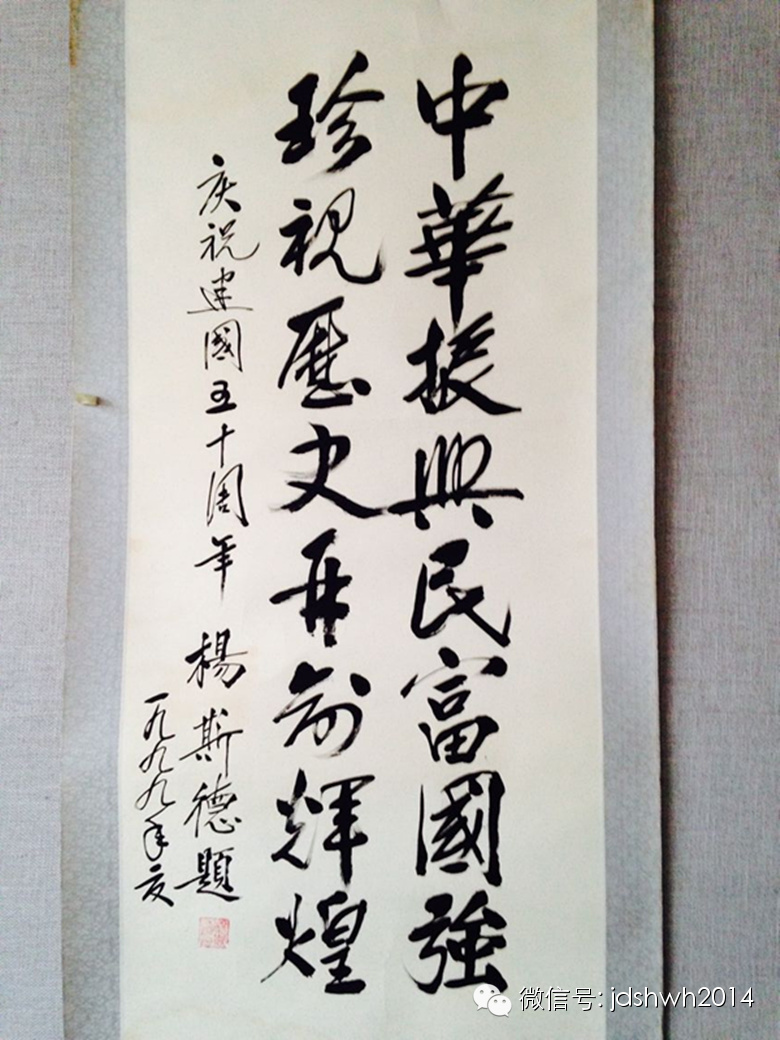 中華振興民富國強
珍視歷史再创輝煌
庆祝建國五十周年 楊斯德題
一九九九年夏
微信号: jdshwh2014